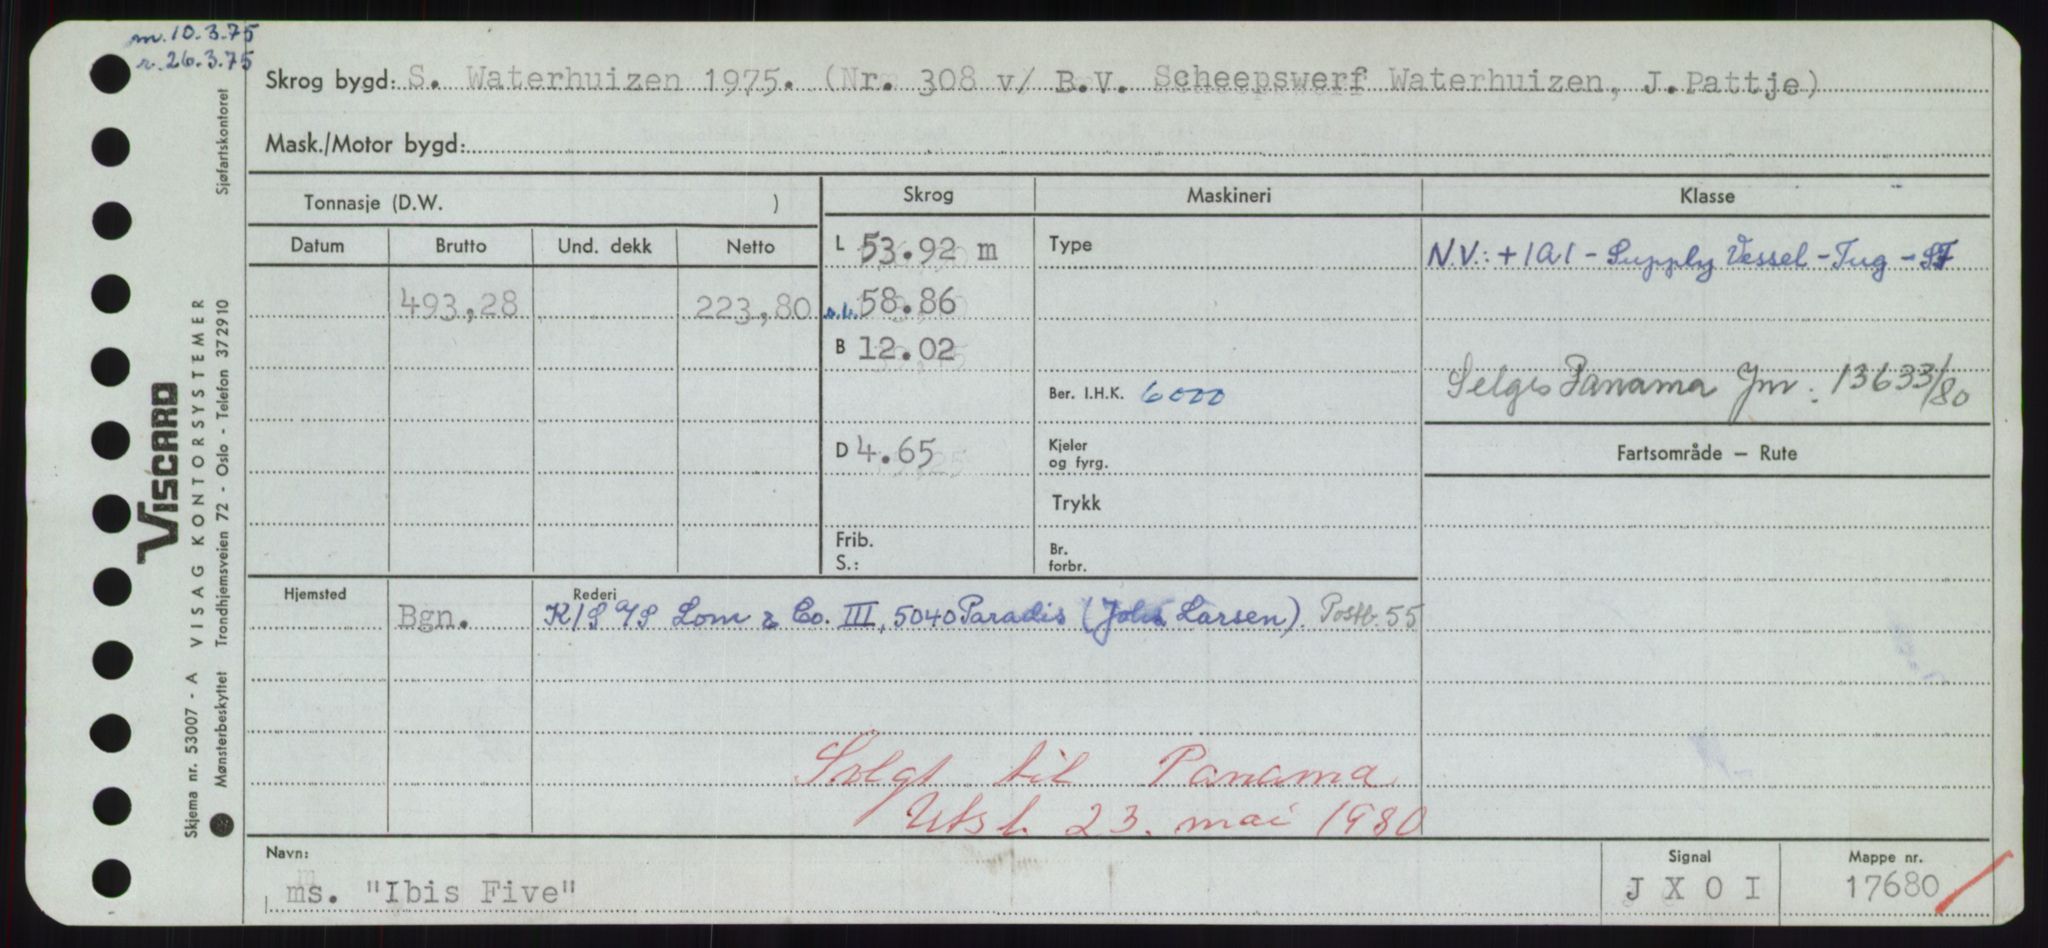 m. 10.3.75
r. 26.3.75
Skrog bygd: S. Waterhuizen 1975. (Nr. 308 v/ B.V. Scheepswerf Waterhuizen, J.Pattje)
Mask./Motor bygd:
Tonnasje (D.W. )
Skrog
Maskineri
Klasse
Datum
Brutto
Und. dekk
Netto
L 53.92 m
Type
N.V.: +1A1 - Supply Vessel - Tug - SF
493,28
223,80
58.86
B 12.02
Ber. I.H.K. 6000
Selges Panama Jnr. 13633/80
D 4.65
Kjeler
og fyrg.
Fartsområde – Rute
Trykk
Frib.
S.:
Br.
forbr.
Hjemsted
Bgn.
Rederi
K/S A/S Lom & Co. III, 5040 Paradis (John Larsen). Postb. 55
Solgt til Panama
Utsl. 23. mai 1980
Navn:
ms. "Ibis Five"
Signal
J X O I
Mappe nr.
17680
Sjøfartskontoret
VISCARD
VISAG KONTORSYSTEMER
Trondhjemsveien 72 - Oslo - Telefon 372910
Skjema nr. 53007 - A
Mønsterbeskyttet